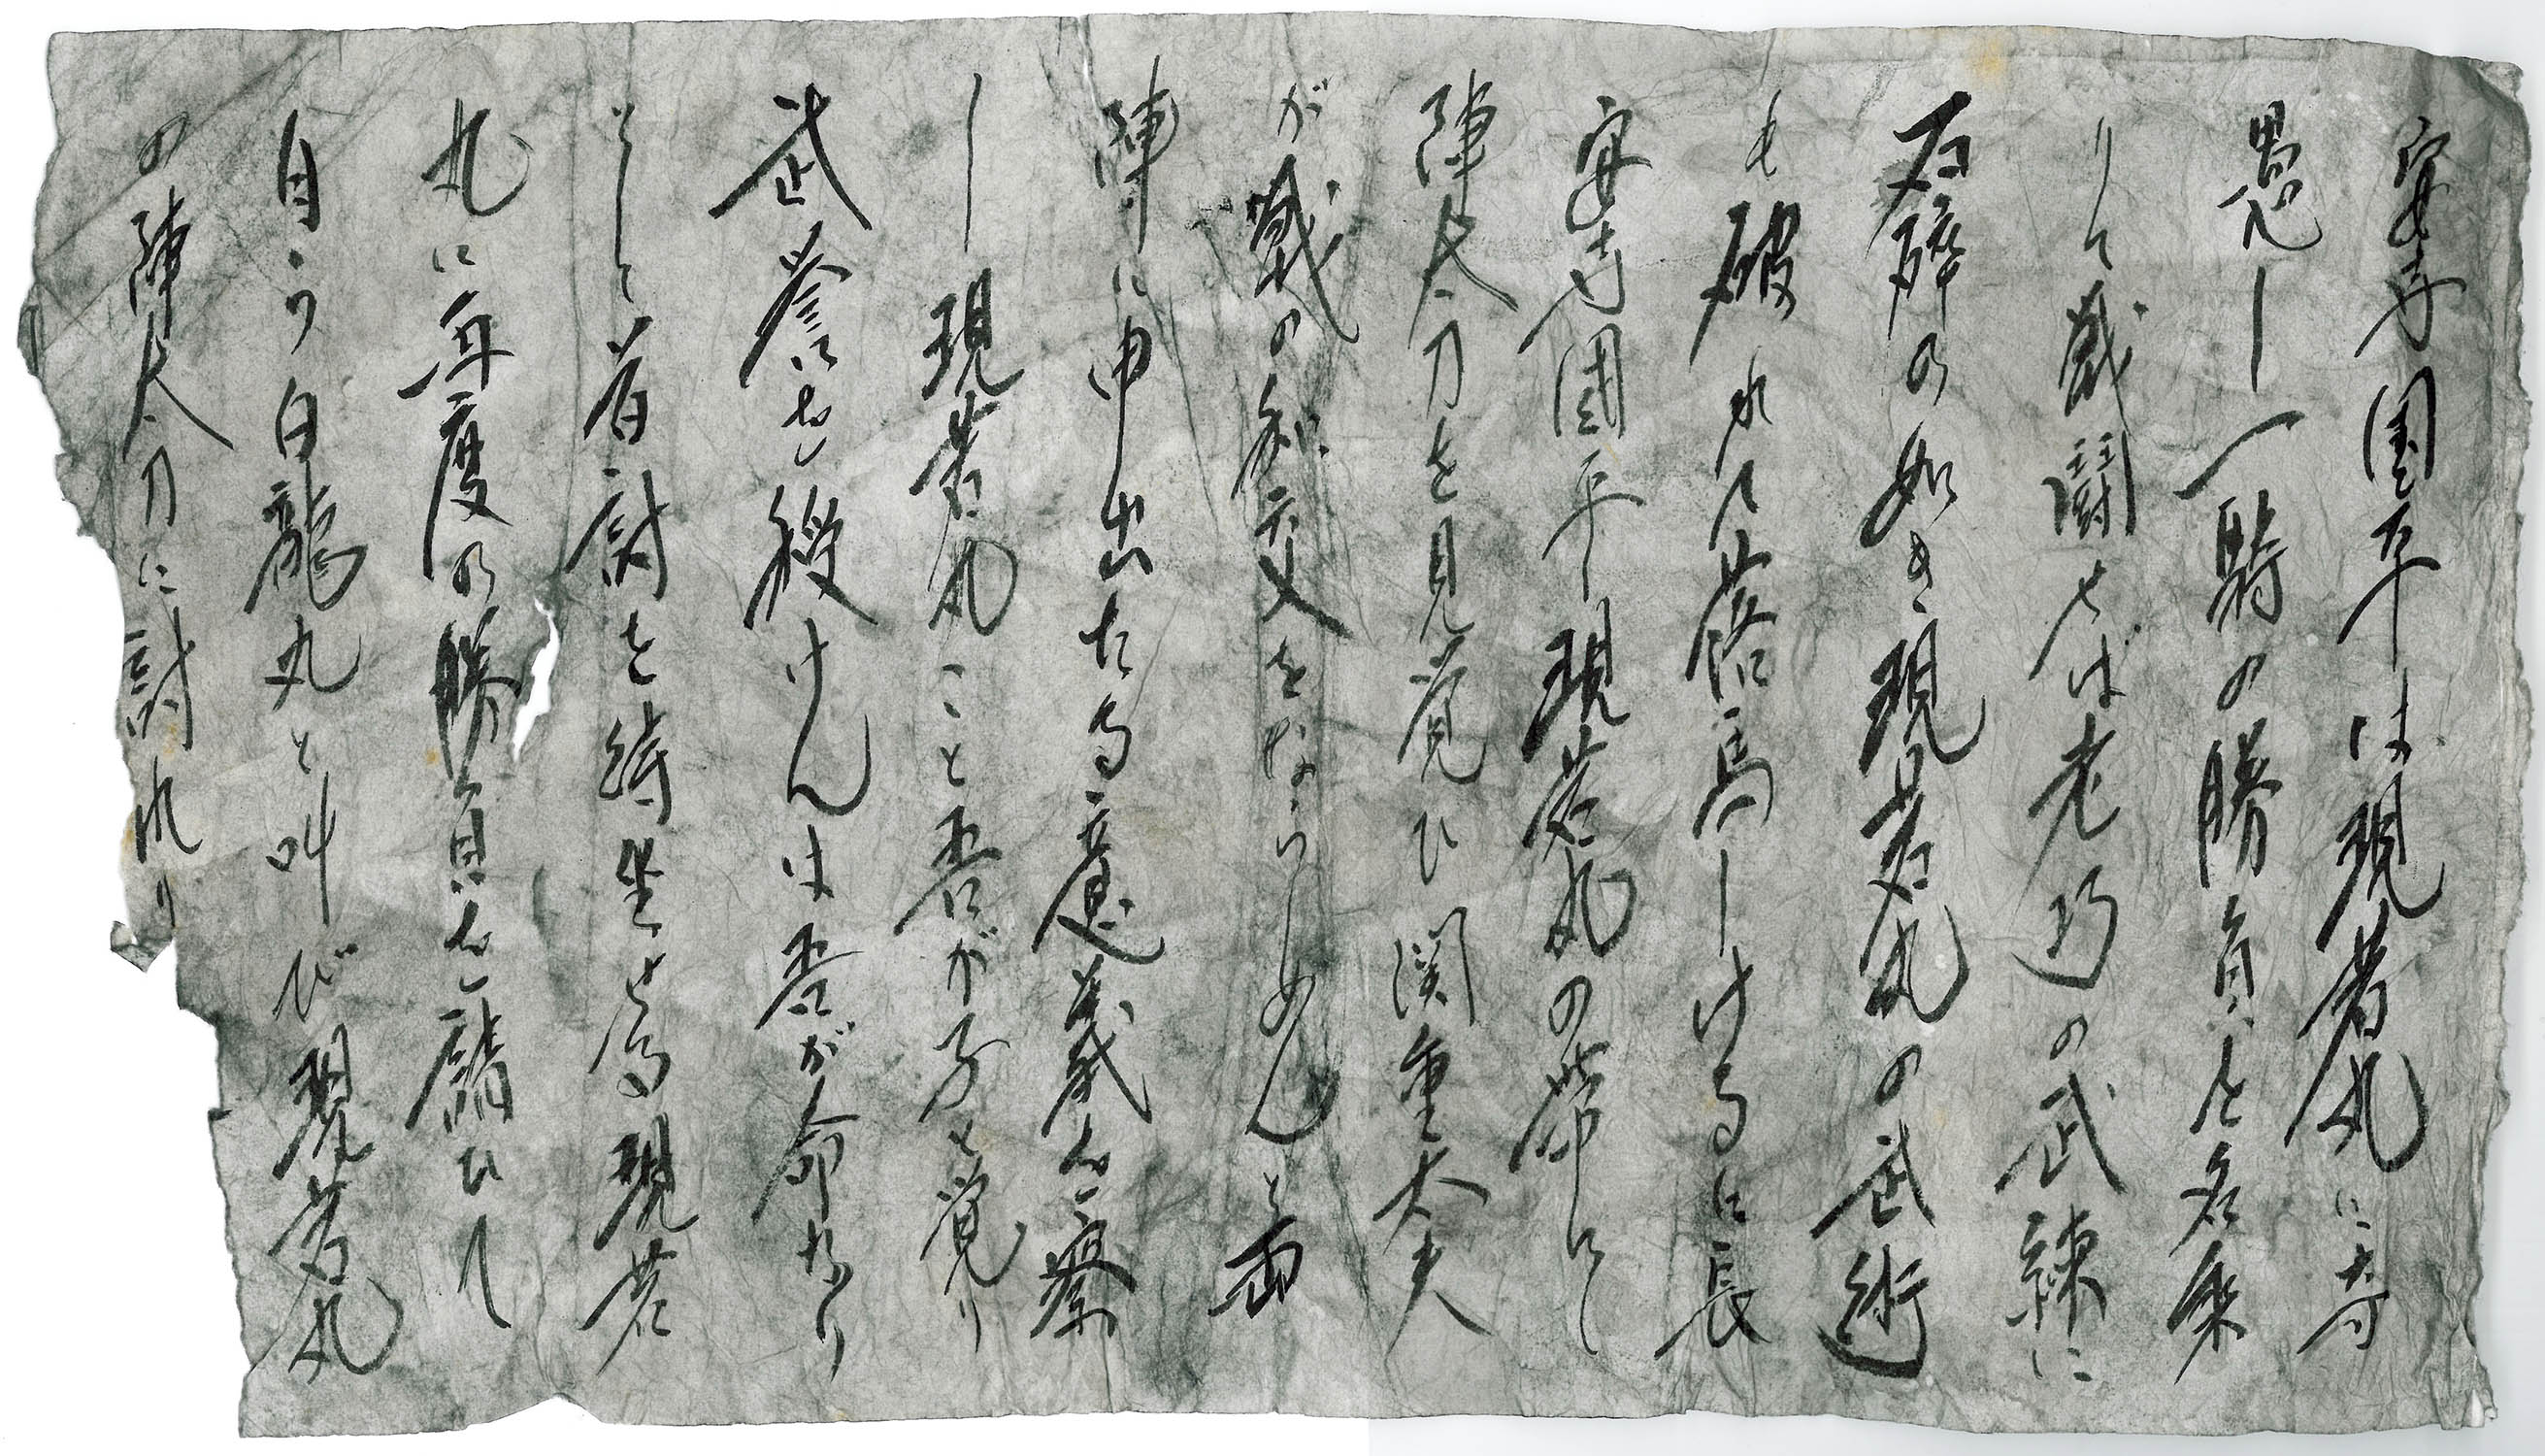 安寺国平は現若丸に奇
愚し一騎の勝負を名乗
りて戦闘せば老巧の武練に
石碎の如き現若丸の武術
も破れて落馬しけるに長
安寺国平現若丸の帯して
陣太刀を見覚ひ関重太夫
が戦の和交をならしめんと両
陣に申出たる意義を察
し現若丸こと吾が子と覚り
武誉にも授けんは吾が命なり
として首討を待坐せる現若
丸に再度の勝負を請ひて
自ら白龍丸と叫び現若丸
の陣太刀に討れり